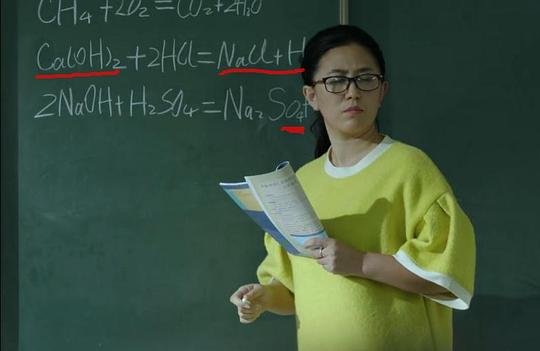 CH₄+2O₂=CO₂+2H₂O
Ca(OH)₂+2HCl=NaCl+H
2NaOH+H₂SO₄=Na₂SO₄+